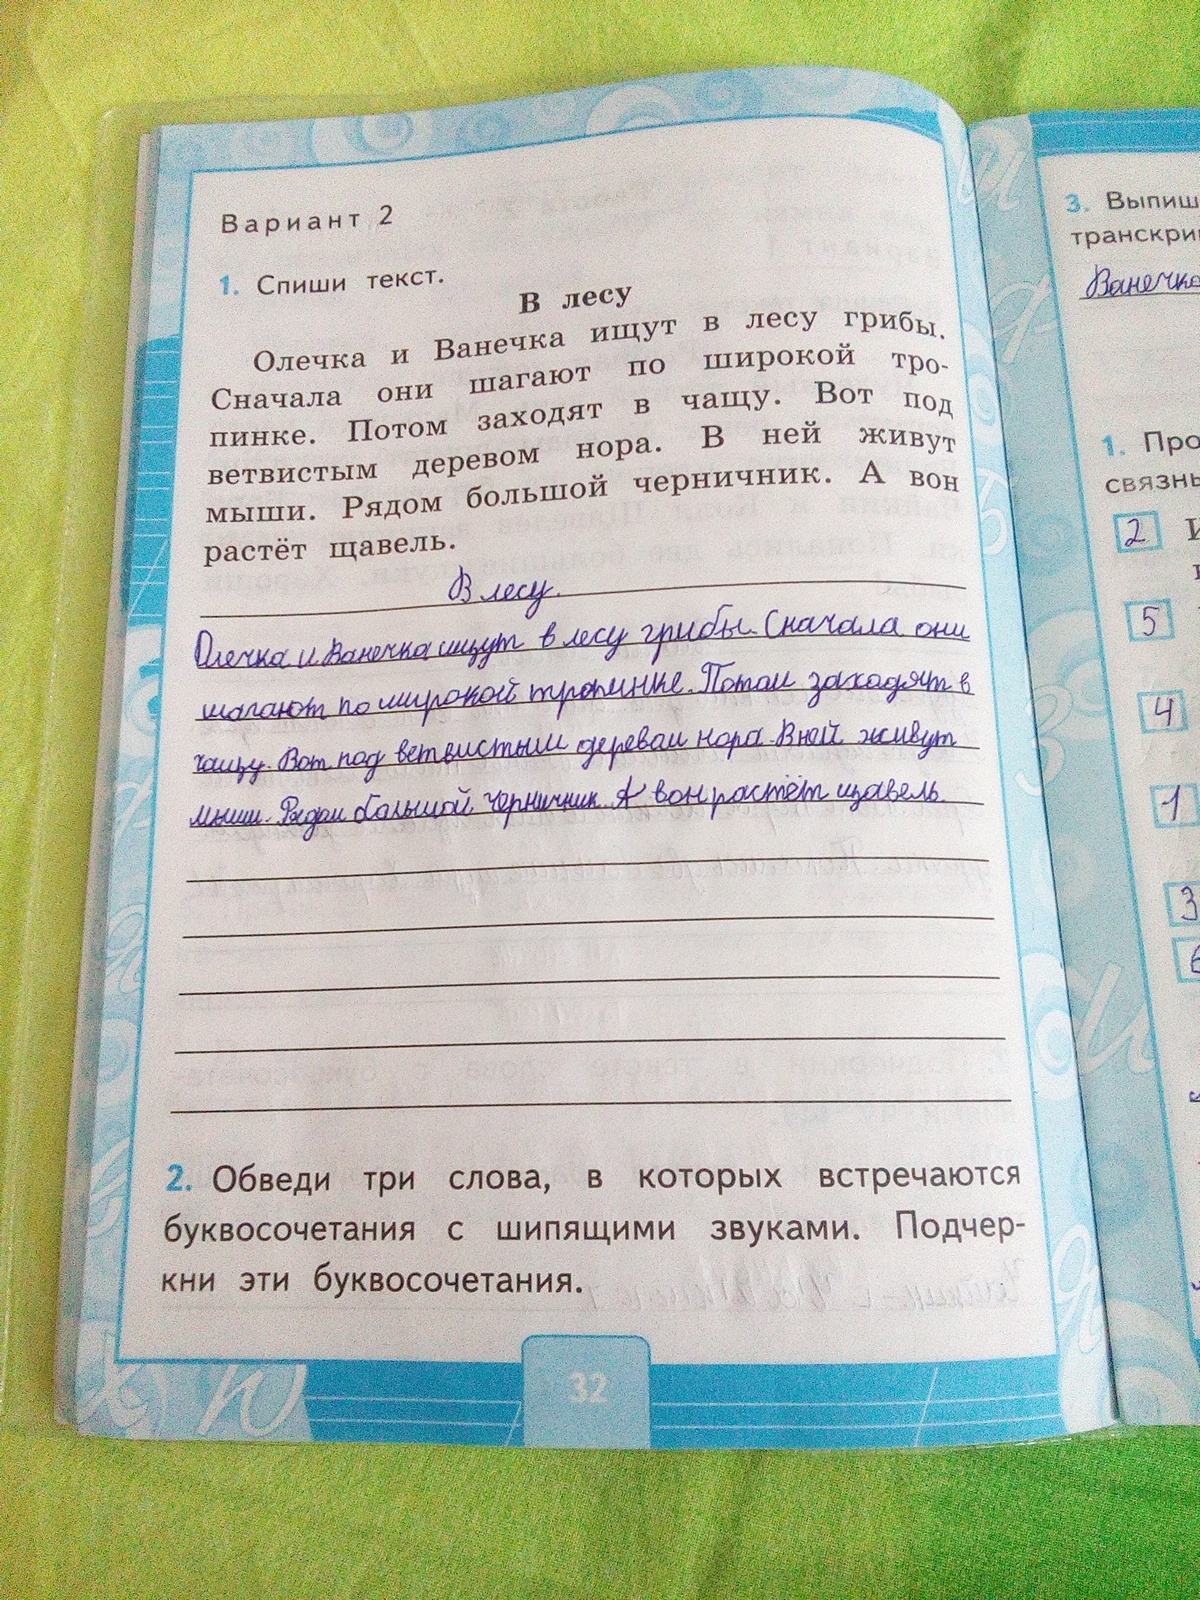 Вариант 2
1. Спиши текст.
В лесу
Олечка и Ванечка ищут в лесу грибы.
Сначала они шагают по широкой тро-
пинке. Потом заходят в чащу. Вот под
ветвистым деревом нора. В ней живут
мыши. Рядом большой черничник. А вон
растёт щавель.
В лесу.
Олечка и Ванечка ищут в лесу грибы. Сначала они
шагают по широкой тропинке. Потом заходят в
чащу. Вот под ветвистым деревом нора. В ней живут
мыши. Рядом большой черничник. А вон растёт щавель.
2. Обведи три слова, в которых встречаются
буквосочетания с шипящими звуками. Подчер-
кни эти буквосочетания.
32
3. Выпиш
транскри
Ванечка
1. Про
связны
2
5
4
1
3